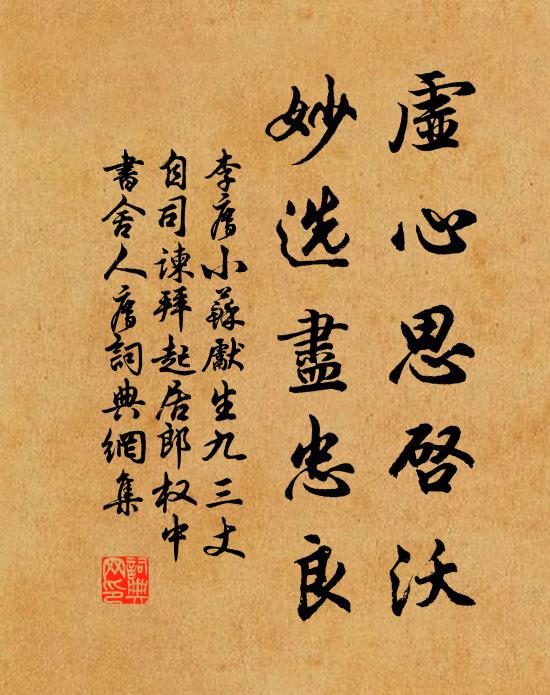 虛心思啓沃
妙选盡忠良
李廌小蘇獻生九三丈
自司諫拜起居郎权中
書舍人廌詞典網集
詞典网印